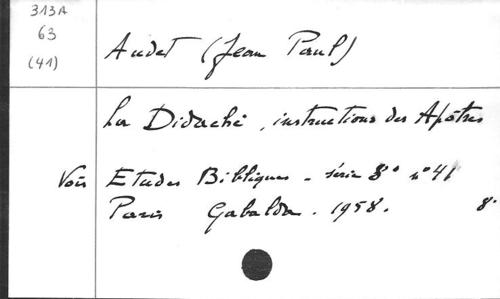 313A
63
(41)
Audet (Jean Paul)
La Didachè, instructions des Apôtres
Voir Etudes Bibliques - série 8° n° 41
Paris Gabalda. 1958. 8°